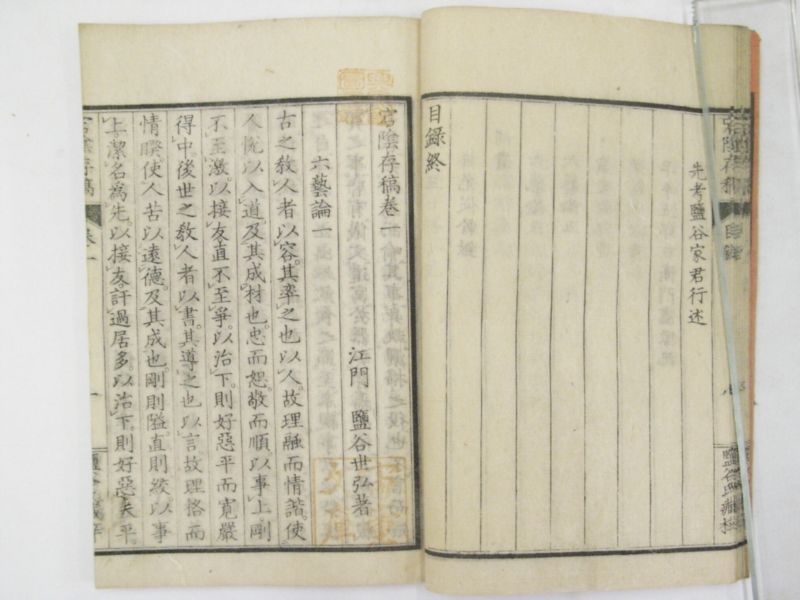 先考鹽谷家君行述
目録終
宕陰存稿卷一
江門 鹽谷世弘著
六藝論一
古之敎人者以容。其率之也以人。故理融而情諧。使
人悅以入道。及其成材也。忠而恕。敬而順。以事上剛
不至激。以接友直不至爭。以治下。則好惡平而寬嚴
得中後世之敎人者以書。其導之也以言。故理格而
情暌。使人苦以遠德。及其成也。剛則隘。直則絞。以事
上潔名爲先。以接友訐過居多。以治下。則好惡失平。
宕陰存稿
卷一